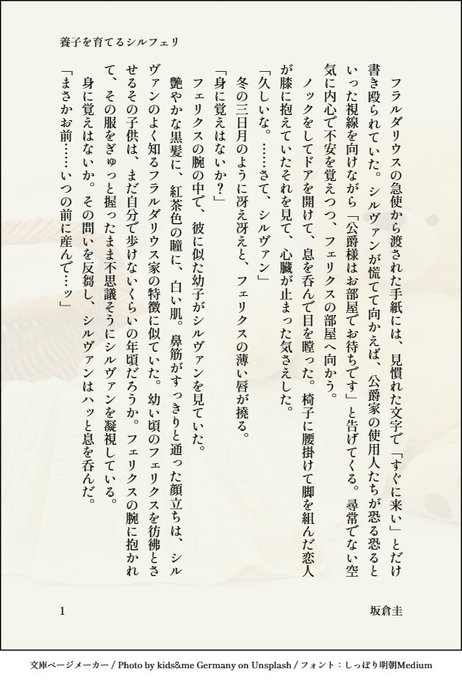 養子を育てるシルフェリ
フラルダリウスの急使から渡された手紙には、見慣れた文字で「すぐに来い」とだけ
書き殴られていた。シルヴァンが慌てて向かえば、公爵家の使用人たちが恐る恐ると
いった視線を向けながら「公爵様はお部屋でお待ちです」と告げてくる。尋常でない空
気に内心で不安を覚えつつ、フェリクスの部屋へ向かう。
ノックをしてドアを開けて、息を呑んで目を瞠った。椅子に腰掛けて脚を組んだ恋人
が膝に抱えていたそれを見て、心臓が止まった気さえした。
「久しいな。……さて、シルヴァン」
冬の三日月のように冴え冴えと、フェリクスの薄い唇が撓る。
「身に覚えはないか？」
フェリクスの腕の中で、彼に似た幼子がシルヴァンを見ていた。
艶やかな黒髪に、紅茶色の瞳に、白い肌。鼻筋がすっきりと通った顔立ちは、シル
ヴァンのよく知るフラルダリウス家の特徴に似ていた。幼い頃のフェリクスを彷彿とさ
せるその子供は、まだ自分で歩けないくらいの年頃だろうか。フェリクスの腕に抱かれ
て、その服をぎゅっと握ったまま不思議そうにシルヴァンを凝視している。
身に覚えはないか。その問いを反芻し、シルヴァンはハッと息を呑んだ。
「まさかお前……いつの前に産んで…ッ」
坂倉圭
1
文庫ページメーカー / Photo by kids&me Germany on Unsplash / フォント：しっぽり明朝Medium